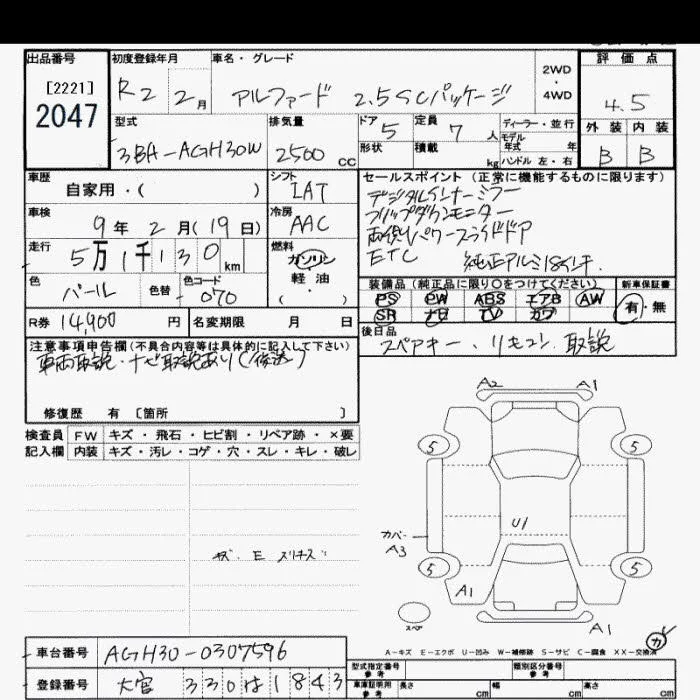 出品番号
[2221]
2047
初度登録年月
R2 2月
車名・グレード
アルファード 2.5SCパッケージ
2WD
・
4WD
評価点
4.5
外装 内装
B B
型式
3BA-AGH30W
排気量
2500 CC
ドア 5
定員 7 人
形状
積載 kg
ディーラー・並行
モデル年式 年
ハンドル 左・右
車歴
自家用・( )
シフト
IAT
車検
9年 2月(19日)
冷房
AAC
走行
5万1千130km
燃料
ガソリン
軽・油
( ・ )
色
パール
色替
色コード
070
R券 14,900 円
名変期限 月 日
セールスポイント (正常に機能するものに限ります)
デジタルインナーミラー
フリップダウンモニター
両側パワースライドドア
ETC 純正アルミ18インチ
装備品(純正品に限り○をつけてください)
PS PW ABS エアB AW
SR ナビ TV カワ
新車保証書
有・無
後日品
スペアキー、リモコン、取説
注意事項申告欄(不具合内容等は具体的に記入して下さい)
車両取説・ナビ取説あり(後送)
修復歴 有 [箇所 ]
検査員 FW キズ・飛石・ヒビ割・リペア跡・×要
記入欄 内装 キズ・汚レ・コゲ・穴・スレ・キレ・破レ
キズ E スリキズ
A2 A1
5 5
U1
カバー
A3
5 5
A1
スペア
A1
カ
A-キズ E-エクボ U-凹み W-補修跡 S-サビ C-腐食 XX-交換済
車台番号 AGH30-0307596
登録番号 大宮 330 は 1843
型式指定番号
参考
類別区分番号
参考
車庫証明用
参考
長さ cm
幅 cm
高さ cm